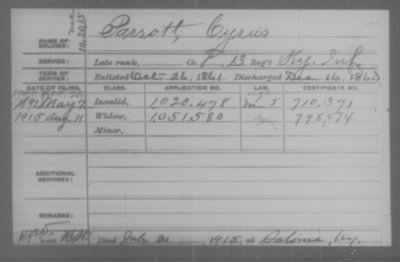 Parrott, Cyrus
NAME OF SOLDIER:
SERVICE: Late rank, Co. F, 13 Reg't Ky. Inf.
TERM OF SERVICE: Enlisted Oct 26, 1861. Discharged Dec 16, 1863
DATE OF FILING. CLASS. APPLICATION NO. LAW. CERTIFICATE NO.
1891 May 7 Invalid, 1020,478 710,371
1915 Aug 11 Widow, 1051,580 795,474
Minor,
ADDITIONAL SERVICES:
REMARKS:
Died July 1915, at Saloma, Ky.